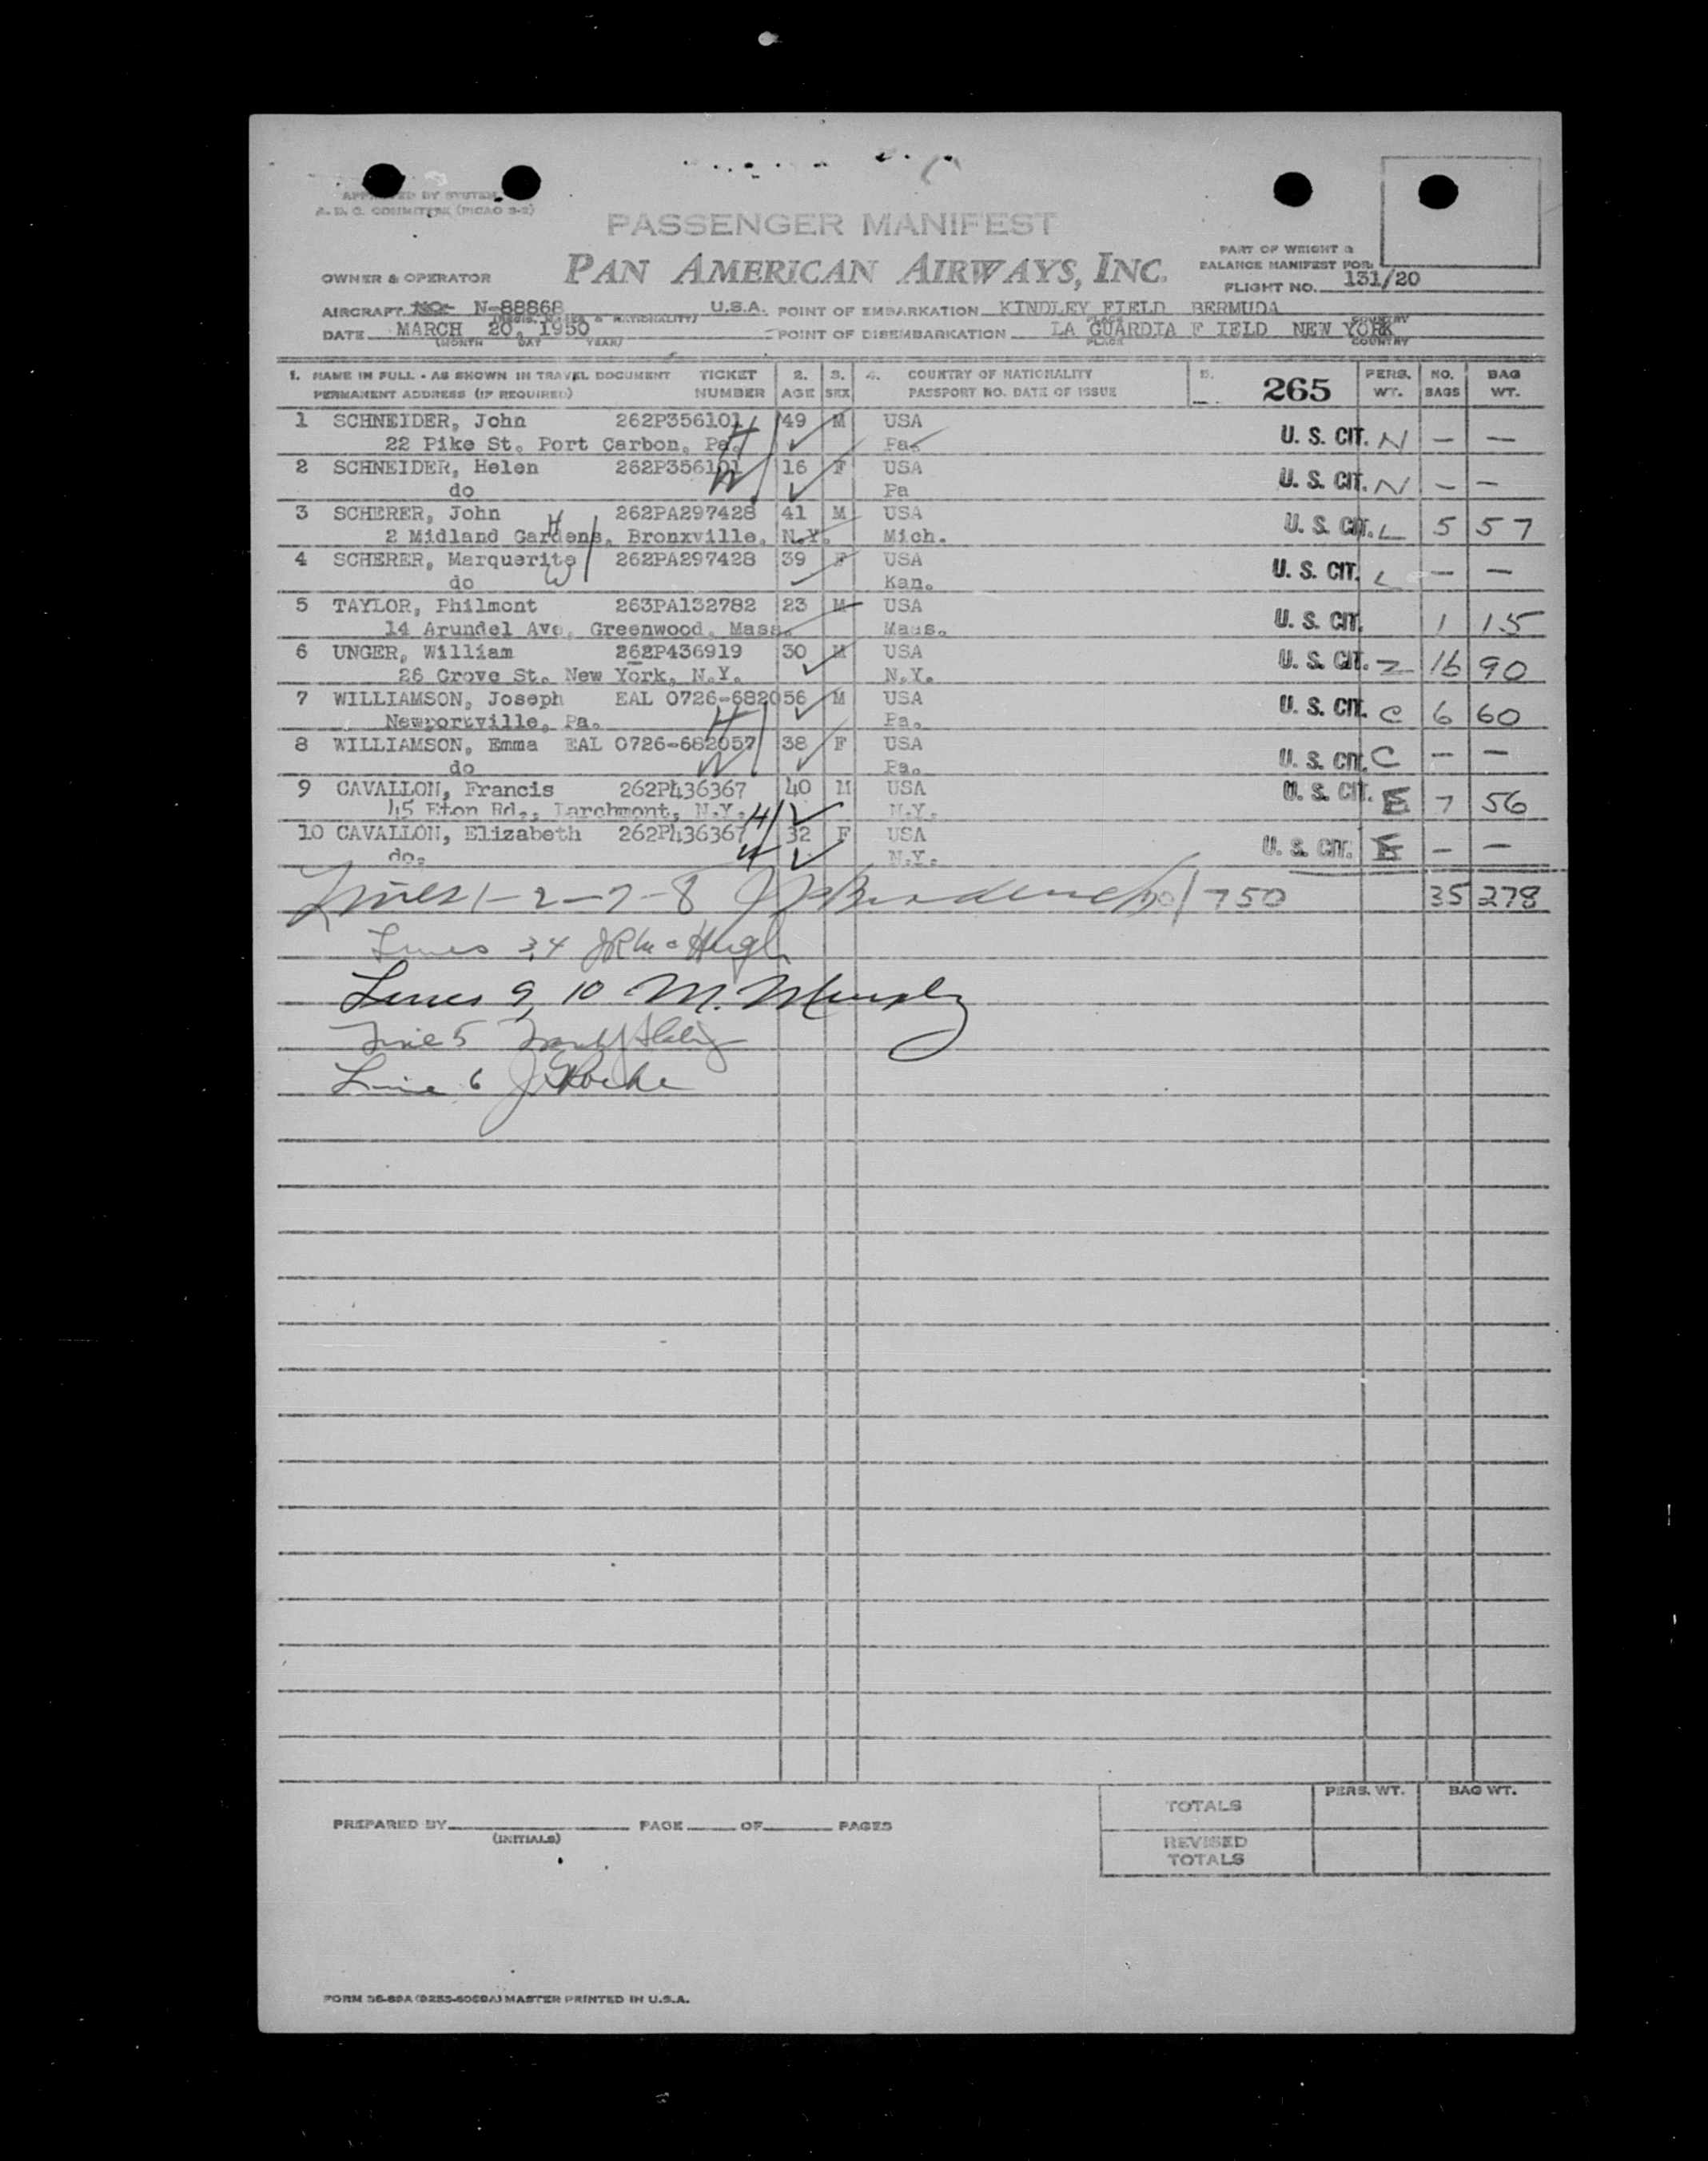 APPROVED BY SYSTEM
A. D. C. COMMITTEE (PICAO 2-2)
PASSENGER MANIFEST
PART OF WEIGHT &
BALANCE MANIFEST FOR
OWNER & OPERATOR PAN AMERICAN AIRWAYS, INC.
FLIGHT NO. 131/20
AIRCRAFT NO. N-88868 U.S.A. POINT OF EMBARKATION KINDLEY FIELD BERMUDA
(REGIS. MARKS & NATIONALITY) PLACE COUNTRY
DATE MARCH 20, 1950 POINT OF DISEMBARKATION LA GUARDIA F IELD NEW YORK
(MONTH DAY YEAR) PLACE COUNTRY
1. NAME IN FULL - AS SHOWN IN TRAVEL DOCUMENT TICKET 2. 3. 4. COUNTRY OF NATIONALITY 5. 265 PERS. NO. BAG
PERMANENT ADDRESS (IF REQUIRED) NUMBER AGE SEX PASSPORT NO. DATE OF ISSUE WT. BAGS WT.
1 SCHNEIDER, John 262P356101 49 M USA
22 Pike St. Port Carbon, Pa. H Pa. U. S. CIT. N — —
2 SCHNEIDER, Helen 262P356101 16 F USA
do W Pa U. S. CIT. N — —
3 SCHERER, John 262PA297428 41 M USA
2 Midland Gardens, Bronxville, N.Y. H Mich. U. S. CIT. L 5 57
4 SCHERER, Marquerite 262PA297428 39 F USA
do W Kan. U. S. CIT. L — —
5 TAYLOR, Philmont 263PA132782 23 M USA
14 Arundel Ave, Greenwood, Mass. Mass. U. S. CIT. 1 15
6 UNGER, William 262P436919 30 M USA
26 Grove St. New York, N.Y. N.Y. U. S. CIT. Z 16 90
7 WILLIAMSON, Joseph EAL 0726-682056 M USA
Newportville, Pa. H Pa. U. S. CIT. C 6 60
8 WILLIAMSON, Emma EAL 0726-682057 38 F USA
do W Pa. U. S. CIT. C — —
9 CAVALLON, Francis 262P436367 40 M USA
45 Eton Rd., Larchmont, N.Y. H N.Y. U. S. CIT. E 7 56
10 CAVALLON, Elizabeth 262P436367 32 F USA
do. W N.Y. U. S. CIT. E — —
Lines 1-2-7-8 750 35 278
Lines 3,4 JP McHugh
Lines 9, 10 M. Murphy
Line 5
Line 6 J Roche
TOTALS PERS. WT. BAG WT.
PREPARED BY PAGE OF PAGES
(INITIALS)
REVISED
TOTALS
FORM 36-89A (9255-6069A) MASTER PRINTED IN U.S.A.